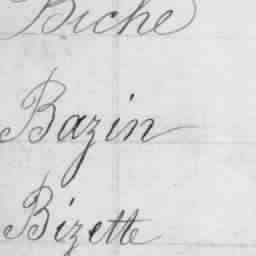 Biche
Bazin
Bizette